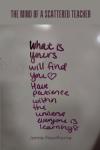 THE MIND OF A SCATTERED TEACHER
What is
yours
will find
you
Have
patience
within
the
universe
everyone is
learning